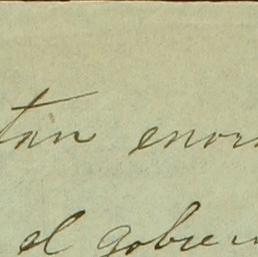 tan enor
el gobier